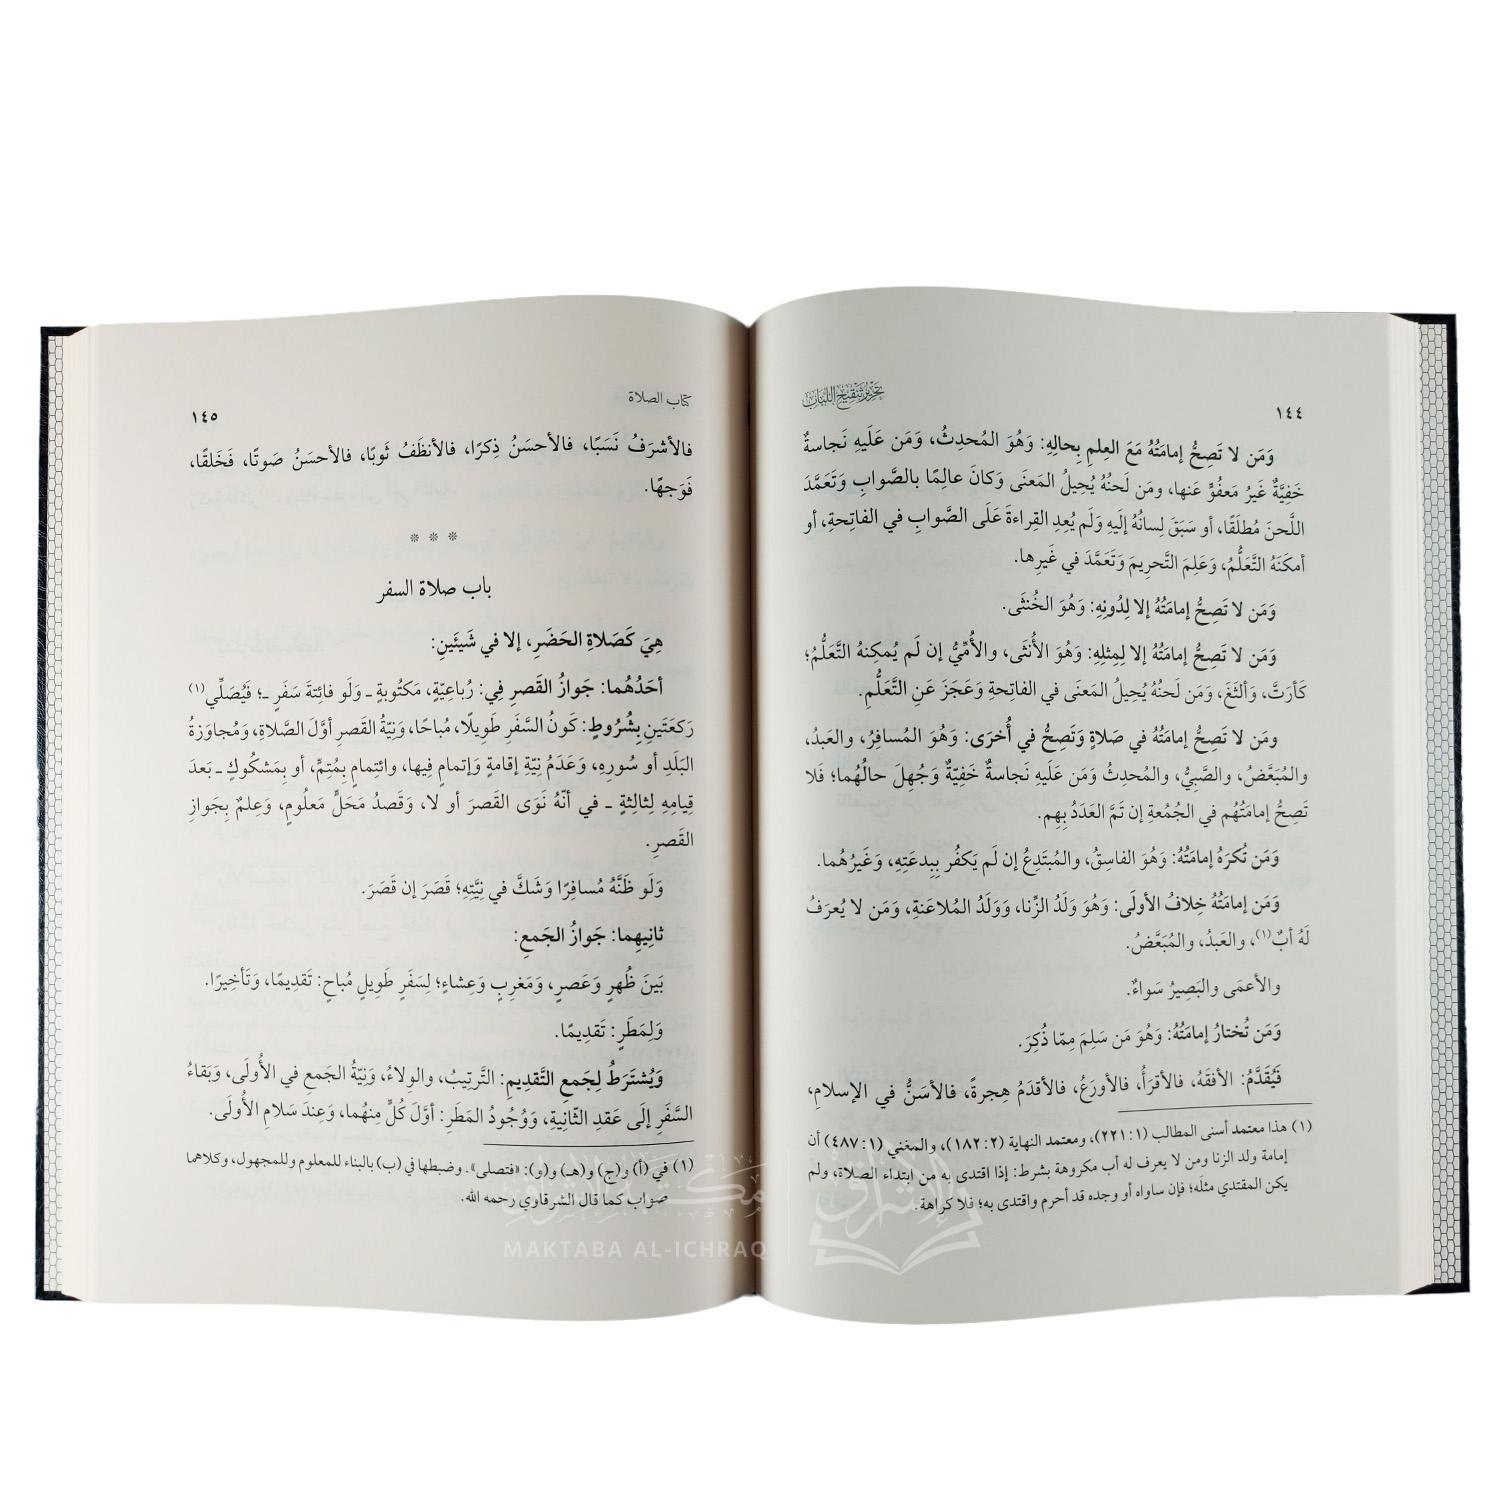 ١٤٤
تحرير تنقيح اللباب
وَمَن لا تَصِحُّ إمامَتُهُ مَعَ العِلمِ بِحالِهِ: وَهُوَ المُحدِثُ، وَمَن عَلَيهِ نَجاسةٌ
خَفِيَّةٌ غَيرُ مَعفُوٍّ عَنها، ومَن لَحنُهُ يُحِيلُ المَعنَى وَكانَ عالِمًا بالصَّوابِ وَتَعَمَّدَ
اللَّحنَ مُطلَقًا، أو سَبَقَ لِسانُهُ إلَيهِ وَلَم يُعِدِ القِراءةَ عَلَى الصَّوابِ في الفاتِحةِ، أو
أمكَنَهُ التَّعَلُّمُ، وَعَلِمَ التَّحرِيمَ وَتَعَمَّدَ في غَيرِها.
وَمَن لا تَصِحُّ إمامَتُهُ إلا لِدُونِهِ: وَهُوَ الخُنثَى.
وَمَن لا تَصِحُّ إمامَتُهُ إلا لِمِثلِهِ: وَهُوَ الأُنثَى، والأُمِّيُّ إن لَم يُمكِنهُ التَّعَلُّمُ؛
كَأرَتَّ، وَألثَغَ، وَمَن لَحنُهُ يُحِيلُ المَعنَى في الفاتِحةِ وَعَجَزَ عَنِ التَّعَلُّمِ.
ومَن لا تَصِحُّ إمامَتُهُ في صَلاةٍ وَتَصِحُّ في أُخرَى: وَهُوَ المُسافِرُ، والعَبدُ،
والمُبَعَّضُ، والصَّبِيُّ، والمُحدِثُ وَمَن عَلَيهِ نَجاسةٌ خَفِيّةٌ وَجُهِلَ حالُهُما؛ فَلا
تَصِحُّ إمامَتُهُم في الجُمُعةِ إن تَمَّ العَدَدُ بِهِم.
وَمَن تُكرَهُ إمامَتُهُ: وَهُوَ الفاسِقُ، والمُبتَدِعُ إن لَم يَكفُر بِبِدعَتِهِ، وَغَيرُهُما.
وَمَن إمامَتُهُ خِلافُ الأَولَى: وَهُوَ وَلَدُ الزِّنا، وَوَلَدُ المُلاعَنةِ، وَمَن لا يُعرَفُ
لَهُ أبٌ(١)، والعَبدُ، والمُبَعَّضُ.
والأعمَى والبَصِيرُ سَواءٌ.
وَمَن تُختارُ إمامَتُهُ: وَهُوَ مَن سَلِمَ مِمّا ذُكِرَ.
فَيُقَدَّمُ: الأفقَهُ، فالأقرَأُ، فالأورَعُ، فالأقدَمُ هِجرةً، فالأسَنُّ في الإسلامِ،
(١) هذا معتمد أسنى المطالب (١: ٢٢١)، ومعتمد النهاية (٢: ١٨٢)، والمغني (١: ٤٨٧) أن
إمامة ولد الزنا ومن لا يعرف له أب مكروهة بشرط: إذا اقتدى به من ابتداء الصلاة، ولم
يكن المقتدي مثلَه؛ فإن ساواه أو وجده قد أحرم واقتدى به؛ فلا كراهة.
كتاب الصلاة
١٤٥
فالأشرَفُ نَسَبًا، فالأحسَنُ ذِكرًا، فالأنظَفُ ثَوبًا، فالأحسَنُ صَوتًا، فَخَلقًا،
فَوَجهًا.
* * *
باب صلاة السفر
هِيَ كَصَلاةِ الحَضَرِ، إلا في شَيئَينِ:
أحَدُهُما: جَوازُ القَصرِ فِي: رُباعِيّةٍ، مَكتُوبةٍ ـ وَلَو فائِتةَ سَفَرٍ ـ؛ فَيُصَلِّي(١)
رَكعَتَينِ بِشُرُوطٍ: كَونُ السَّفَرِ طَوِيلًا، مُباحًا، وَنِيّةُ القَصرِ أوَّلَ الصَّلاةِ، وَمُجاوَزةُ
البَلَدِ أو سُورِهِ، وَعَدَمُ نِيّةِ إقامةٍ وَإتمامٍ فِيها، وائتِمامٍ بِمُتِمٍّ، أو بِمَشكُوكٍ ـ بَعدَ
قِيامِهِ لِثالِثةٍ ـ في أنّهُ نَوَى القَصرَ أو لا، وَقَصدُ مَحَلٍّ مَعلُومٍ، وَعِلمٌ بِجَوازِ
القَصرِ.
وَلَو ظَنَّهُ مُسافِرًا وَشَكَّ في نِيَّتِهِ؛ قَصَرَ إن قَصَرَ.
ثانِيهِما: جَوازُ الجَمعِ:
بَينَ ظُهرٍ وَعَصرٍ، وَمَغرِبٍ وَعِشاءٍ؛ لِسَفَرٍ طَوِيلٍ مُباحٍ: تَقدِيمًا، وَتَأخِيرًا.
وَلِمَطَرٍ: تَقدِيمًا.
وَيُشتَرَطُ لِجَمعِ التَّقدِيمِ: التَّرتِيبُ، والوِلاءُ، وَنِيّةُ الجَمعِ في الأُولَى، وَبَقاءُ
السَّفَرِ إلى عَقدِ الثّانِيةِ، وَوُجُودُ المَطَرِ: أوَّلَ كُلٍّ مِنهُما، وَعِندَ سَلامِ الأُولَى.
(١) في (أ) و(ج) و(هـ) و(و): «فتصلى». وضبطها في (ب) بالبناء للمعلوم وللمجهول، وكلاهما
صواب كما قال الشرقاوي رحمه الله.
مكتبة الإشراق
MAKTABA AL-ICHRAQ
الإشراق